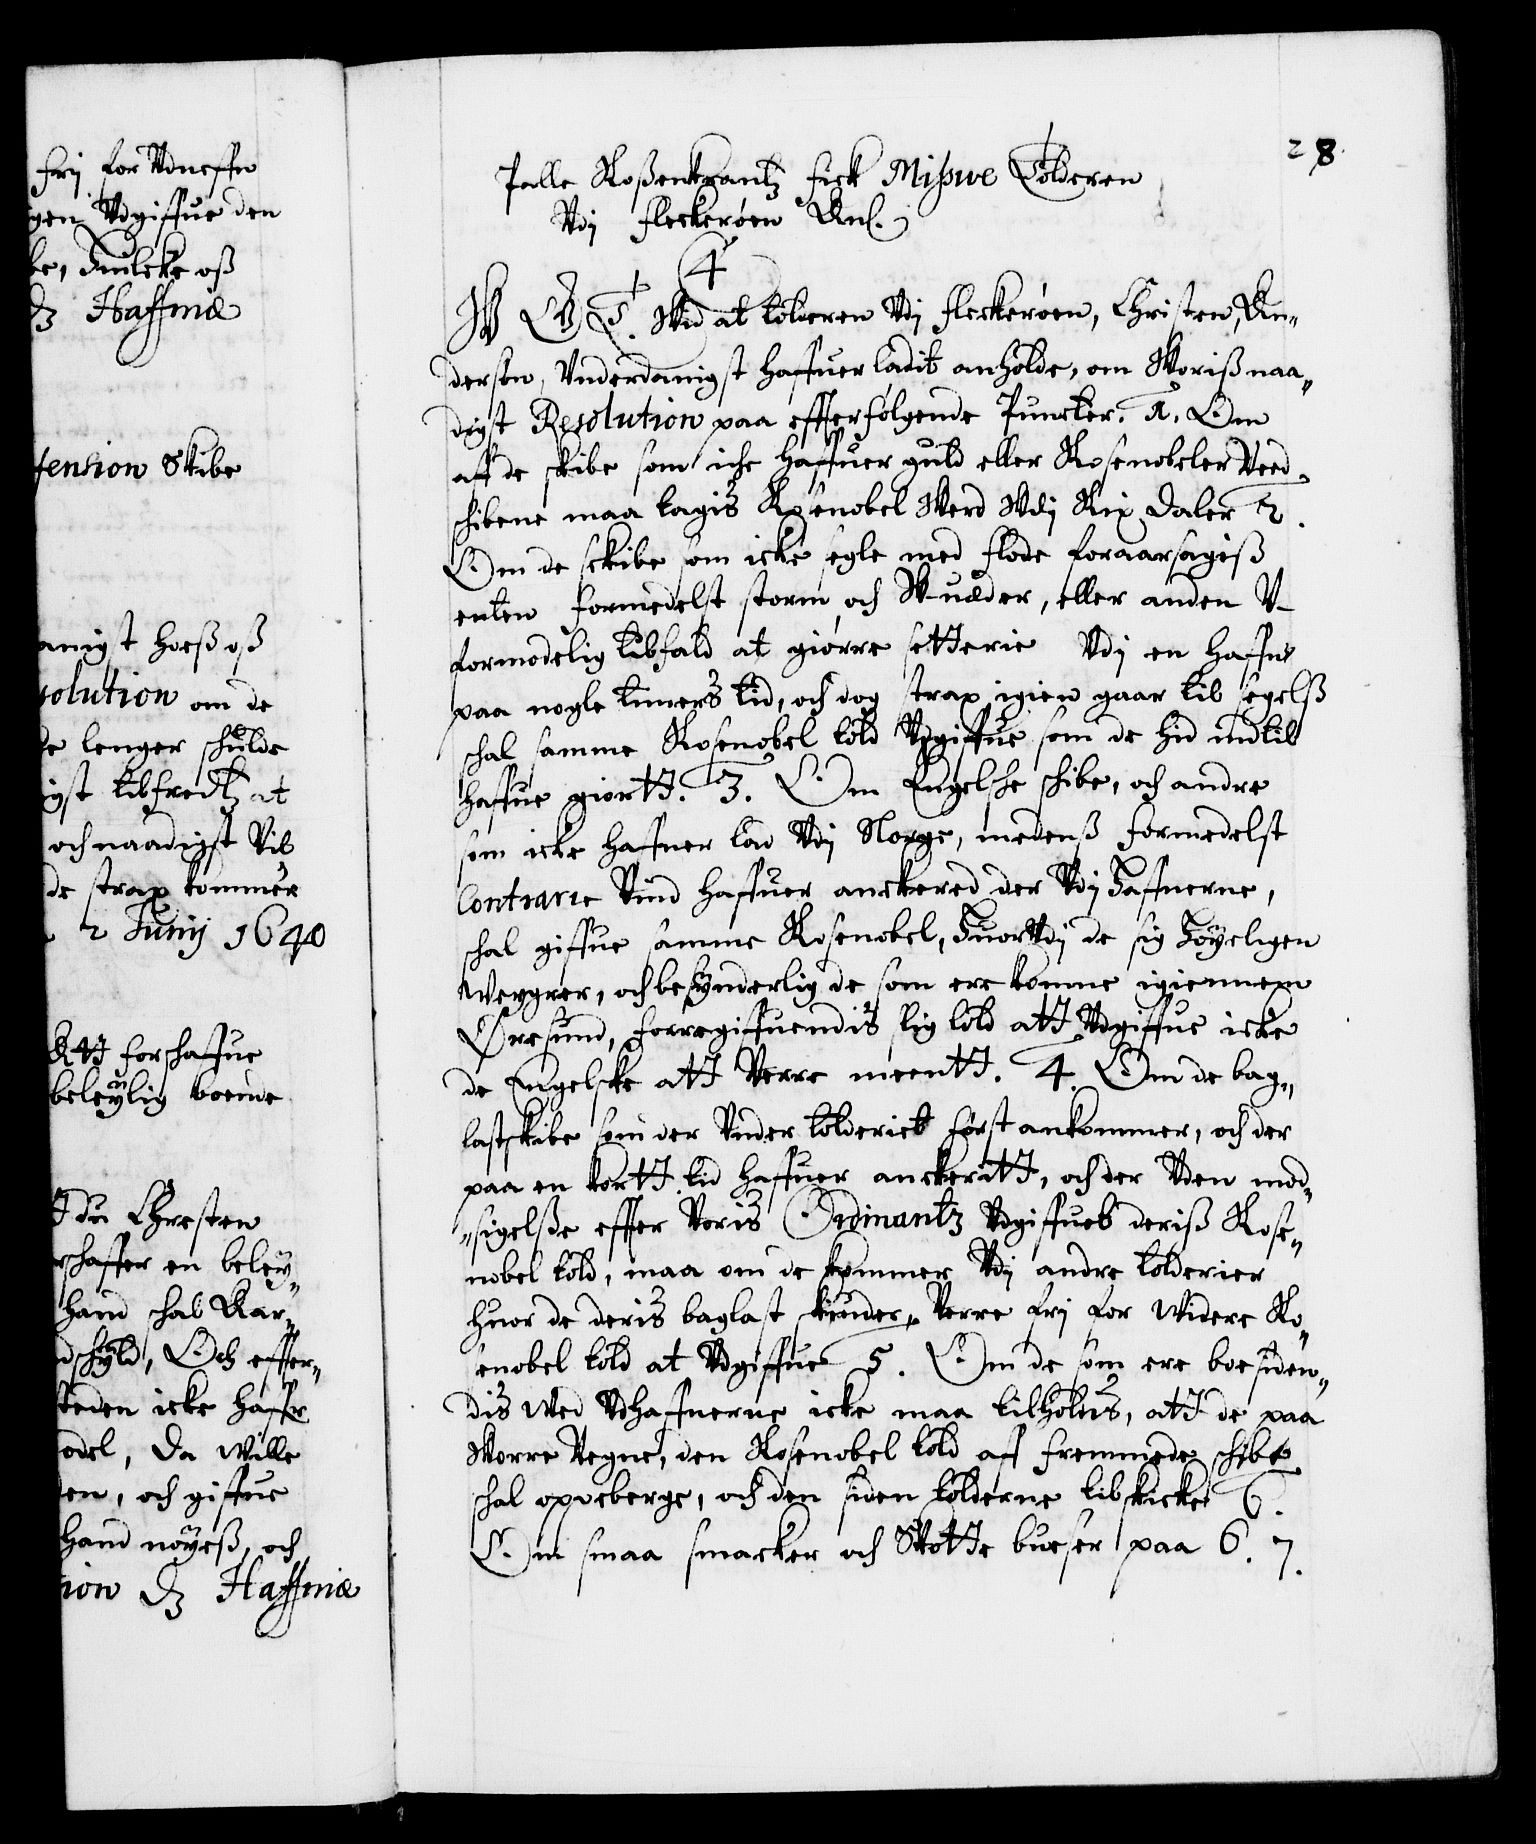 frij for Vdneffn
gen Vdgiffue den
be, huilcke oß
dz Haffniæ
fension Skibe
anigst hoeß oß
solution om de
be lenger schulde
igst tilfredtz at
och naadigst Vil
de strax kommer
2 Junij 1640
Att forschaffue
beleylig boeme
du Christen
rschaffer en beley„
hand schal bar„
dschyld, Och effter„
steden icke haffr
odel, Da Wille
en, och giffue
hand nøyeß, och
tion dz Haffniæ
28
Palle Roßenkrantz fick Missive Tolderen
Vdj Fleckerøen Anl.
4
W G T. Wid at tolderen Vdj Fleckerøen, Christen An„
dersøn, Vnderdanigst haffuer ladit anholde, om Woriß naa„
digst Resolution paa effterfølgende Puncter. 1. Om
aff de skibe som icke haffuer guld eller Rosenobeler Veed
schibene maa tagis Rosenobel Werd Wdj Rix Daler 2.
Om de sckibe som icke segle med flode foraarsagiß
enten formedelst storm och W-uæder, eller anden V-
formodelig tilfald at giørre setterie Vdj en haffn
paa nogle timers tid, och dog strax igien gaar til segelß
schal samme Rosenobel told Vdgiffue som de hid indtil
haffue giortt. 3. Om Engelsche schibe, och andre
som icke haffuer lad Vdj Norge, medenß formedelst
Contrarie Vind haffuer anckered der Vdj Haffnerne,
schal giffue samme Rosenobel, huor Vdj de sig høyeligen
Weygrer, och besynderlig de som ere komne igiennem
Øresund, forregiffuendis slig told att Vdgiffue icke
de Engelske att Verre meentt. 4. Om de bag„
lastskibe som der Vnder tolderiet først ankommer, och der
paa en kortt tid haffuer anckeritt, och der Vden mod„
„sigelße effter Voris Ordinantz Vdgiffuet deriß Rose„
nobel told, maa om de kommer Vdj andre tolderier
huor de deris baglast skiuder, Verre frj for Widere Ro„
senobel told at Vdgiffue 5. Om de som ere boesiden„
dis Wed Vdhaffnerne icke maa tilholdis, att de paa
Worre Vegne, den Rosenobel told aff fremmede schibe
schal opoeberge, och den siden tolderne tilskicke 6.
Om smaa smacker och Skotte bueser paa 6. 7.